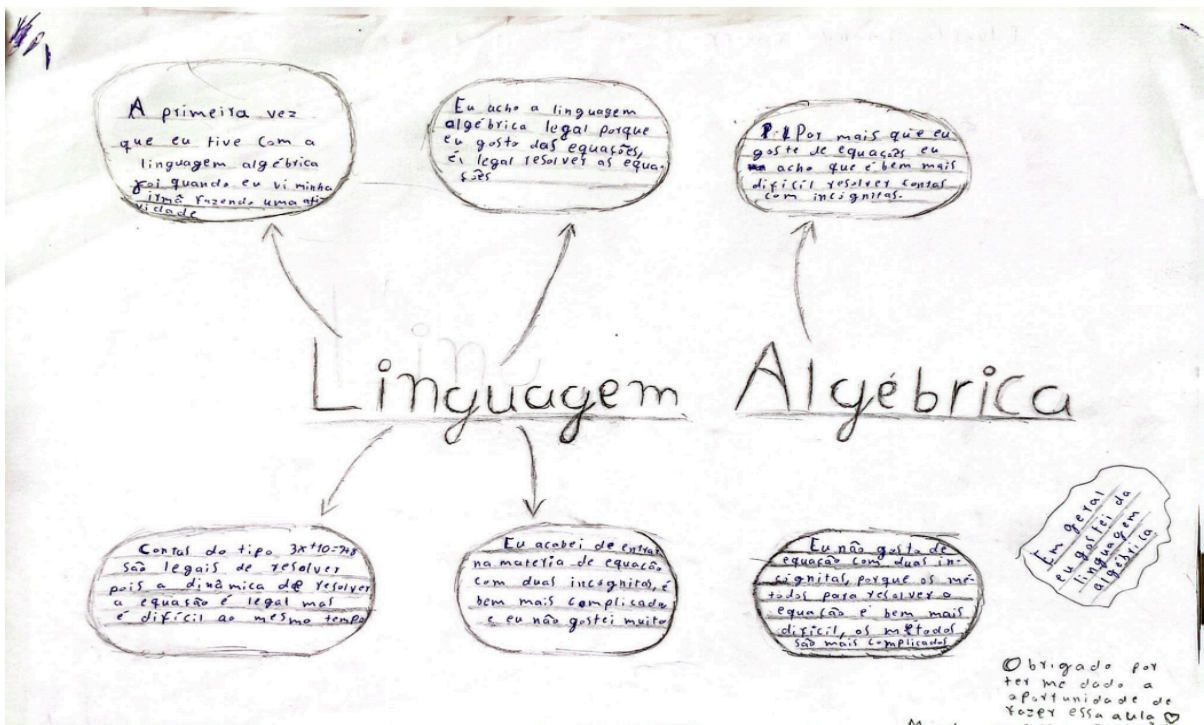 A primeira vez
que eu tive com a
linguagem algébrica
foi quando eu vi minha
irmã fazendo uma ati
vidade
Eu acho a linguagem
algébrica legal porque
eu gosto das equações,
é legal resolver as equa-
ções
Por mais que eu
goste de equações eu
acho que é bem mais
difícil resolver contas
com incógnitas.
Linguagem Algébrica
Contas do tipo 3x+10=
são legais de resolver
pois a dinâmica de resolver
a equação é legal mas
é difícil ao mesmo tempo
Eu acabei de entrar
na materia de equação
com duas incógnitas, é
bem mais complicada
e eu não gostei muito
Eu não gosto de
equação com duas in-
cógnitas, porque os mé-
todos para resolver a
equação é bem mais
difícil, os métodos
são mais complicados
Em geral
eu gostei da
linguagem
algébrica
Obrigado por
ter me dado a
oportunidade de
fazer essa aula ♡